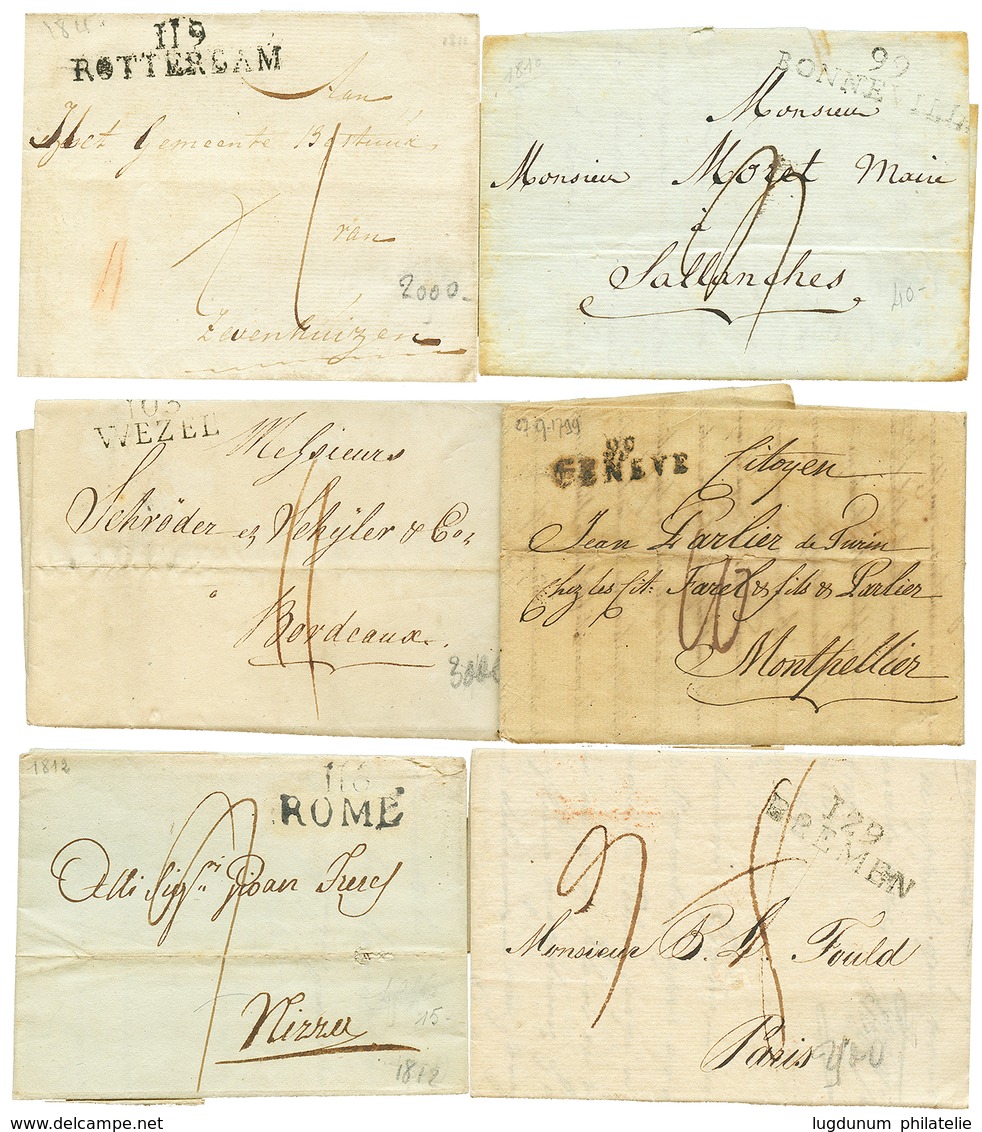 1811
119
ROTTERDAM
Aan
Het Gemeente Bestuur
van
Zevenhuizen
2000-
1810
99
BONNEVILLE
Monsieur
Monsieur Moret Maire
à
Sallanches
40-
103
WEZEL
Messieurs
Schröder et Schÿler & Co,
à
Bordeaux.
27-9-1799
99
GENEVE
Citoyen
Jean Parlier de Turin
chez les Cit: Farel & fils & Parlier
Montpellier
1812
116
ROME
Alli Sigri
Nizza
15-
1812
129
BREMEN
Monsieur B. L. Fould
Paris
delcampe.net
lugdunum philatelie